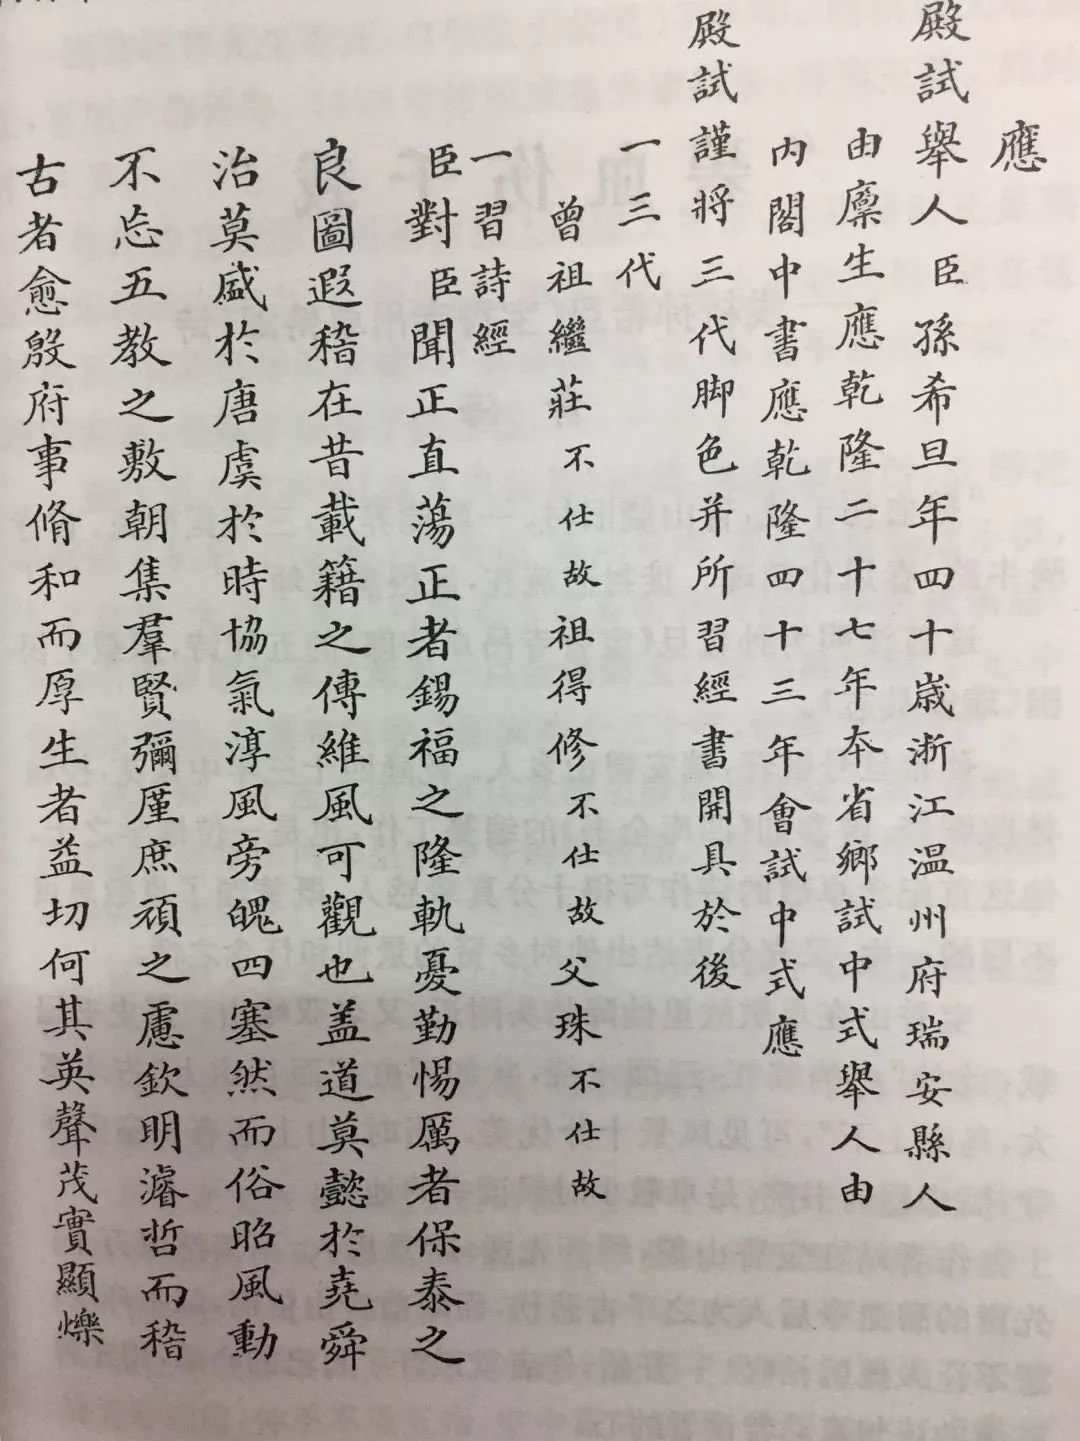 應
殿試舉人臣孫希旦年四十歲浙江温州府瑞安縣人
由廩生應乾隆二十七年本省鄉試中式舉人由
内閣中書應乾隆四十三年會試中式應
殿試謹將三代脚色并所習經書開具於後
一三代
曾祖繼莊不仕故祖得修不仕故父珠不仕故
一習詩經
臣對臣聞正直蕩正者錫福之隆軌憂勤惕厲者保泰之
良圖遐稽在昔載籍之傳維風可觀也盖道莫懿於堯舜
治莫盛於唐虞於時協氣淳風旁魄四塞然而俗昭風動
不忘五教之敷朝集羣賢彌廑庶頑之慮欽明濬哲而稽
古者愈殷府事脩和而厚生者益切何其英聲茂實顯爍